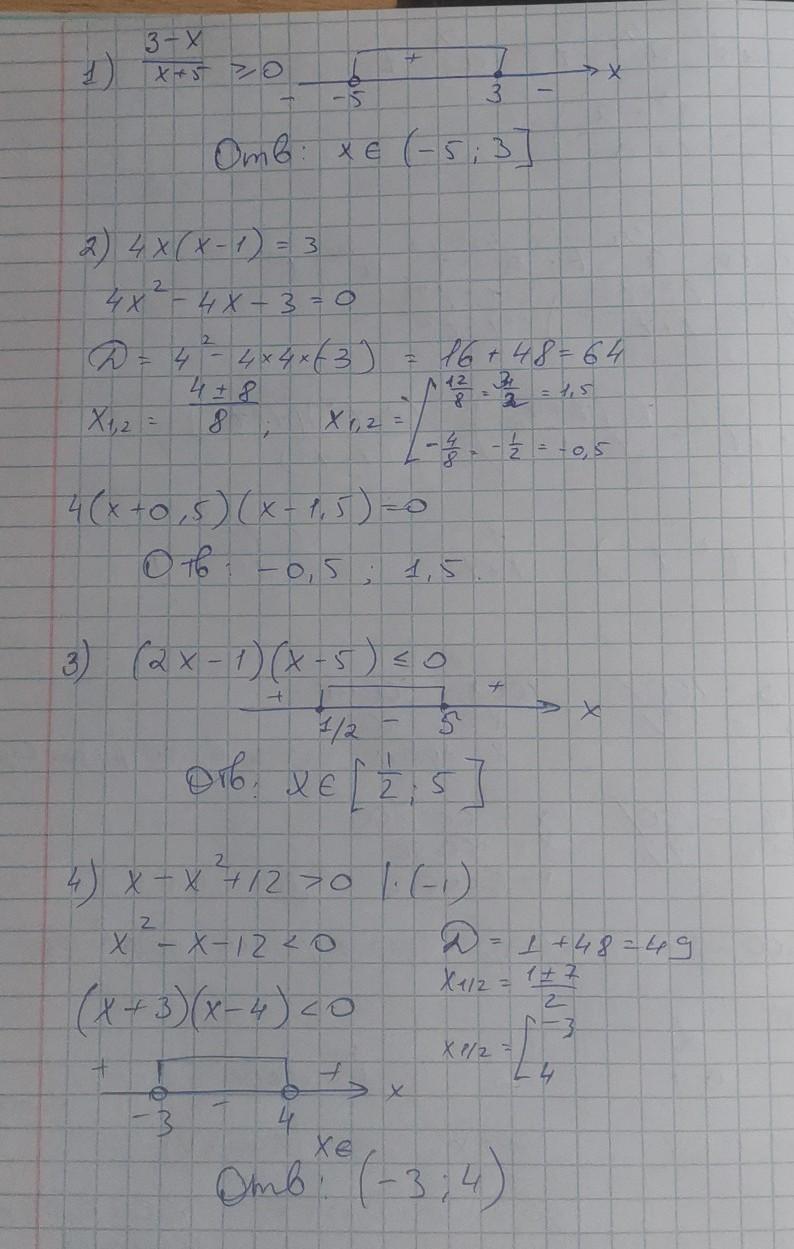 1) (3-x)/(x+5) ≥ 0   -   -5   +   3   -   x
Отв: x ∈ (-5; 3]
2) 4x(x-1) = 3
4x² - 4x - 3 = 0
D = 4² - 4×4×(-3) = 16 + 48 = 64
x1,2 = (4 ± 8)/8 ;   x1,2 = [ 12/8 = 3/2 = 1,5
-4/8 = -1/2 = -0,5
4(x+0,5)(x-1,5) = 0
Отв: -0,5 ; 1,5.
3) (2x-1)(x-5) ≤ 0
+   1/2   -   5   +   x
Отв: x ∈ [1/2 ; 5]
4) x - x² + 12 > 0 |·(-1)
x² - x - 12 < 0   D = 1 + 48 = 49
x1/2 = (1 ± 7)/2
(x+3)(x-4) < 0   x1/2 = [ -3
4
+   -3   -   4   +   x
x∈
Отв: (-3; 4)